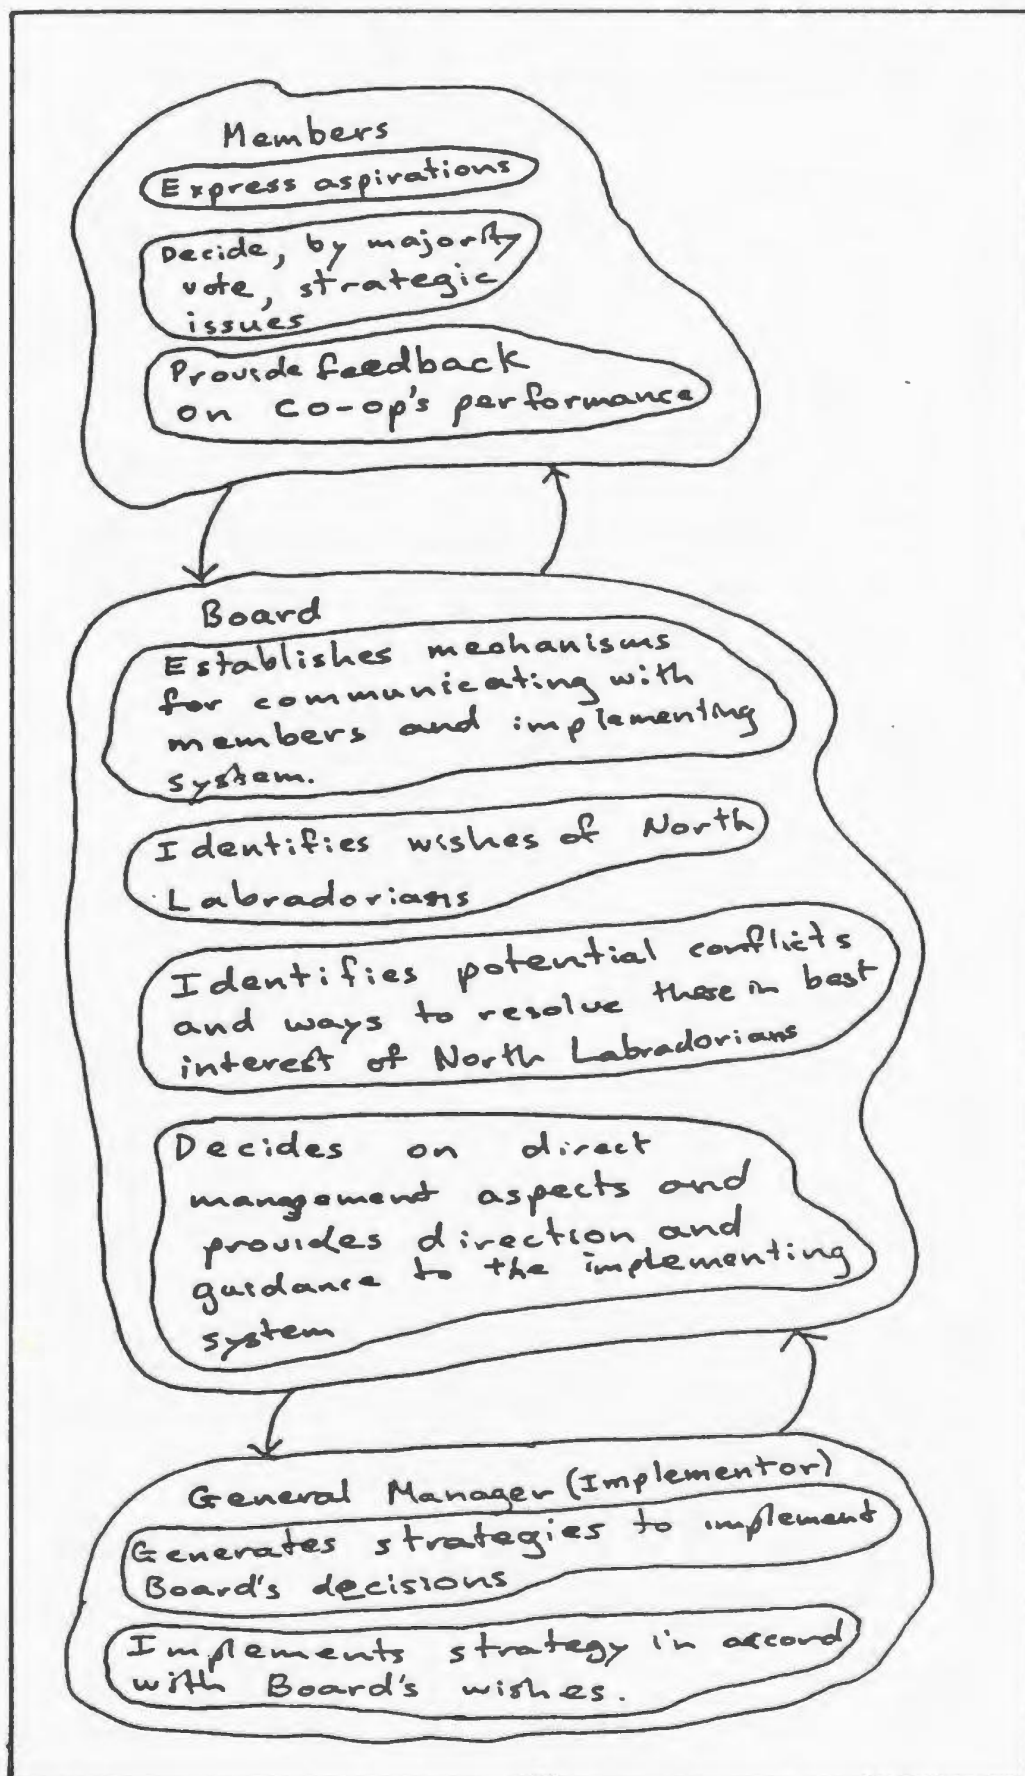 Members
Express aspirations
Decide, by majority
vote, strategic
issues
Provide feedback
on Co-op's performance
Board
Establishes mechanisms
for communicating with
members and implementing
system.
Identifies wishes of North
Labradorians
Identifies potential conflicts
and ways to resolve these in best
interest of North Labradorians
Decides on direct
management aspects and
provides direction and
guidance to the implementing
system
General Manager (Implementor)
Generates strategies to implement
Board's decisions
Implements strategy in accord
with Board's wishes.